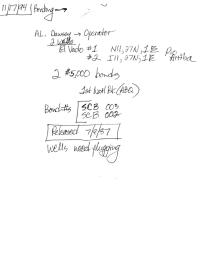 11/17/94 Bonding →
AL. Dawsey → Operator
2 wells
El Vado #1 N11, 27N, 1E Rio
#2 I11, 27N, 1E Arriba
2 $5,000 bonds
1st Natl Bk (ABQ)
Bond #s SCB 003
SCB 002
Released 7/8/87
wells need plugging